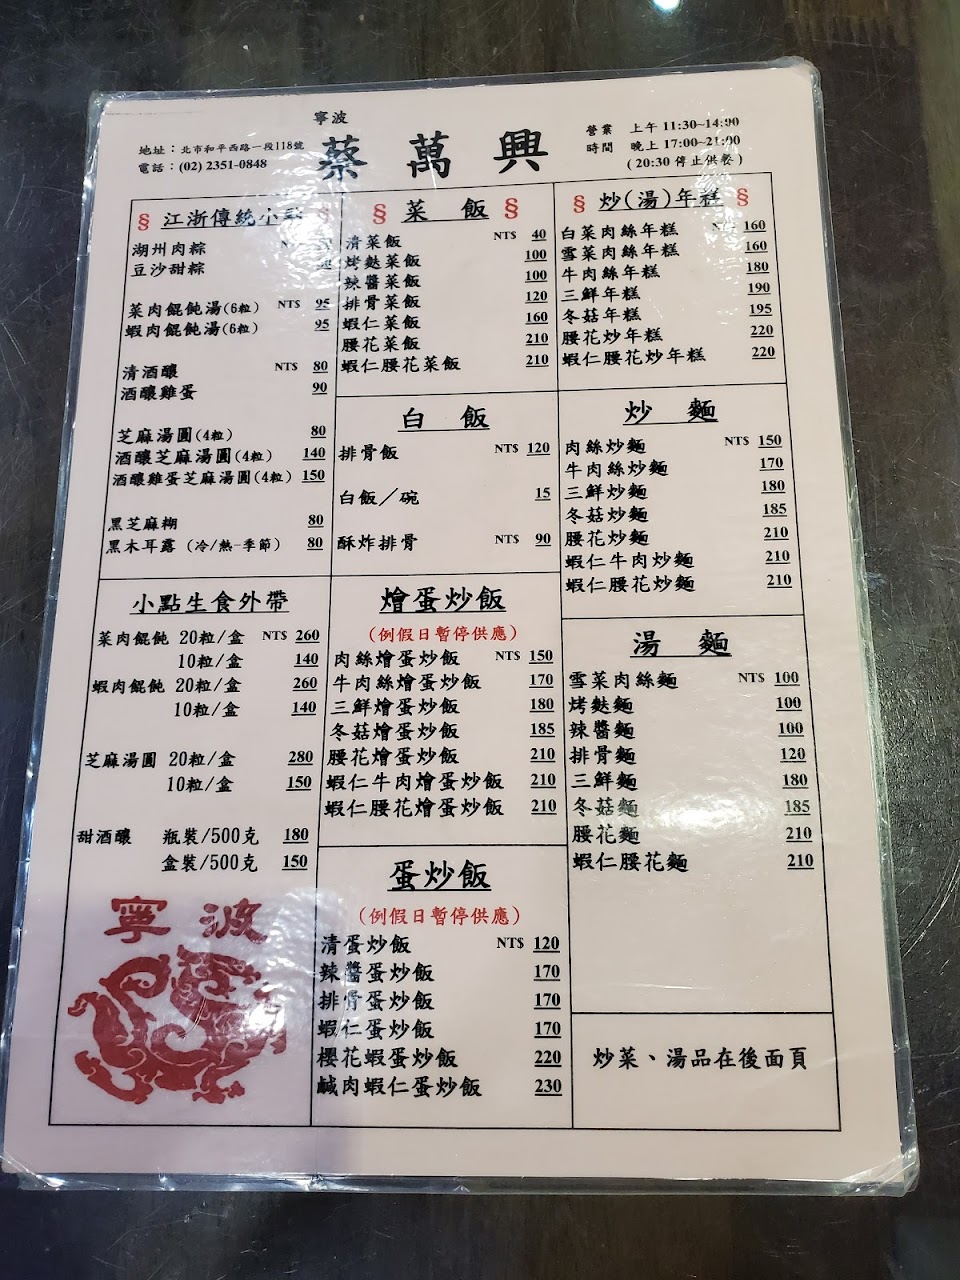 寧波
蔡萬興
地址：北市和平西路一段118號
電話：(02) 2351-0848
營業 上午 11:30~14:00
時間 晚上 17:00~21:00
(20:30 停止供餐)
§ 江浙傳統小 §
湖州肉粽
豆沙甜粽
菜肉餛飩湯(6粒) NT$ 95
蝦肉餛飩湯(6粒) 95
清酒釀 NT$ 80
酒釀雞蛋 90
芝麻湯圓(4粒) 80
酒釀芝麻湯圓(4粒) 140
酒釀雞蛋芝麻湯圓(4粒) 150
黑芝麻糊 80
黑木耳露 (冷/熱-季節) 80
小點生食外帶
菜肉餛飩 20粒/盒 NT$ 260
10粒/盒 140
蝦肉餛飩 20粒/盒 260
10粒/盒 140
芝麻湯圓 20粒/盒 280
10粒/盒 150
甜酒釀 瓶裝/500克 180
盒裝/500克 150
寧波
§ 菜飯 §
清菜飯 NT$ 40
烤麩菜飯 100
辣醬菜飯 100
排骨菜飯 120
蝦仁菜飯 160
腰花菜飯 210
蝦仁腰花菜飯 210
白飯
排骨飯 NT$ 120
白飯／碗 15
酥炸排骨 NT$ 90
燴蛋炒飯
(例假日暫停供應)
肉絲燴蛋炒飯 NT$ 150
牛肉絲燴蛋炒飯 170
三鮮燴蛋炒飯 180
冬菇燴蛋炒飯 185
腰花燴蛋炒飯 210
蝦仁牛肉燴蛋炒飯 210
蝦仁腰花燴蛋炒飯 210
蛋炒飯
(例假日暫停供應)
清蛋炒飯 NT$ 120
辣醬蛋炒飯 170
排骨蛋炒飯 170
蝦仁蛋炒飯 170
櫻花蝦蛋炒飯 220
鹹肉蝦仁蛋炒飯 230
§ 炒(湯)年糕 §
白菜肉絲年糕 160
雪菜肉絲年糕 160
牛肉絲年糕 180
三鮮年糕 190
冬菇年糕 195
腰花炒年糕 220
蝦仁腰花炒年糕 220
炒麵
肉絲炒麵 NT$ 150
牛肉絲炒麵 170
三鮮炒麵 180
冬菇炒麵 185
腰花炒麵 210
蝦仁牛肉炒麵 210
蝦仁腰花炒麵 210
湯麵
雪菜肉絲麵 NT$ 100
烤麩麵 100
辣醬麵 100
排骨麵 120
三鮮麵 180
冬菇麵 185
腰花麵 210
蝦仁腰花麵 210
炒菜、湯品在後面頁